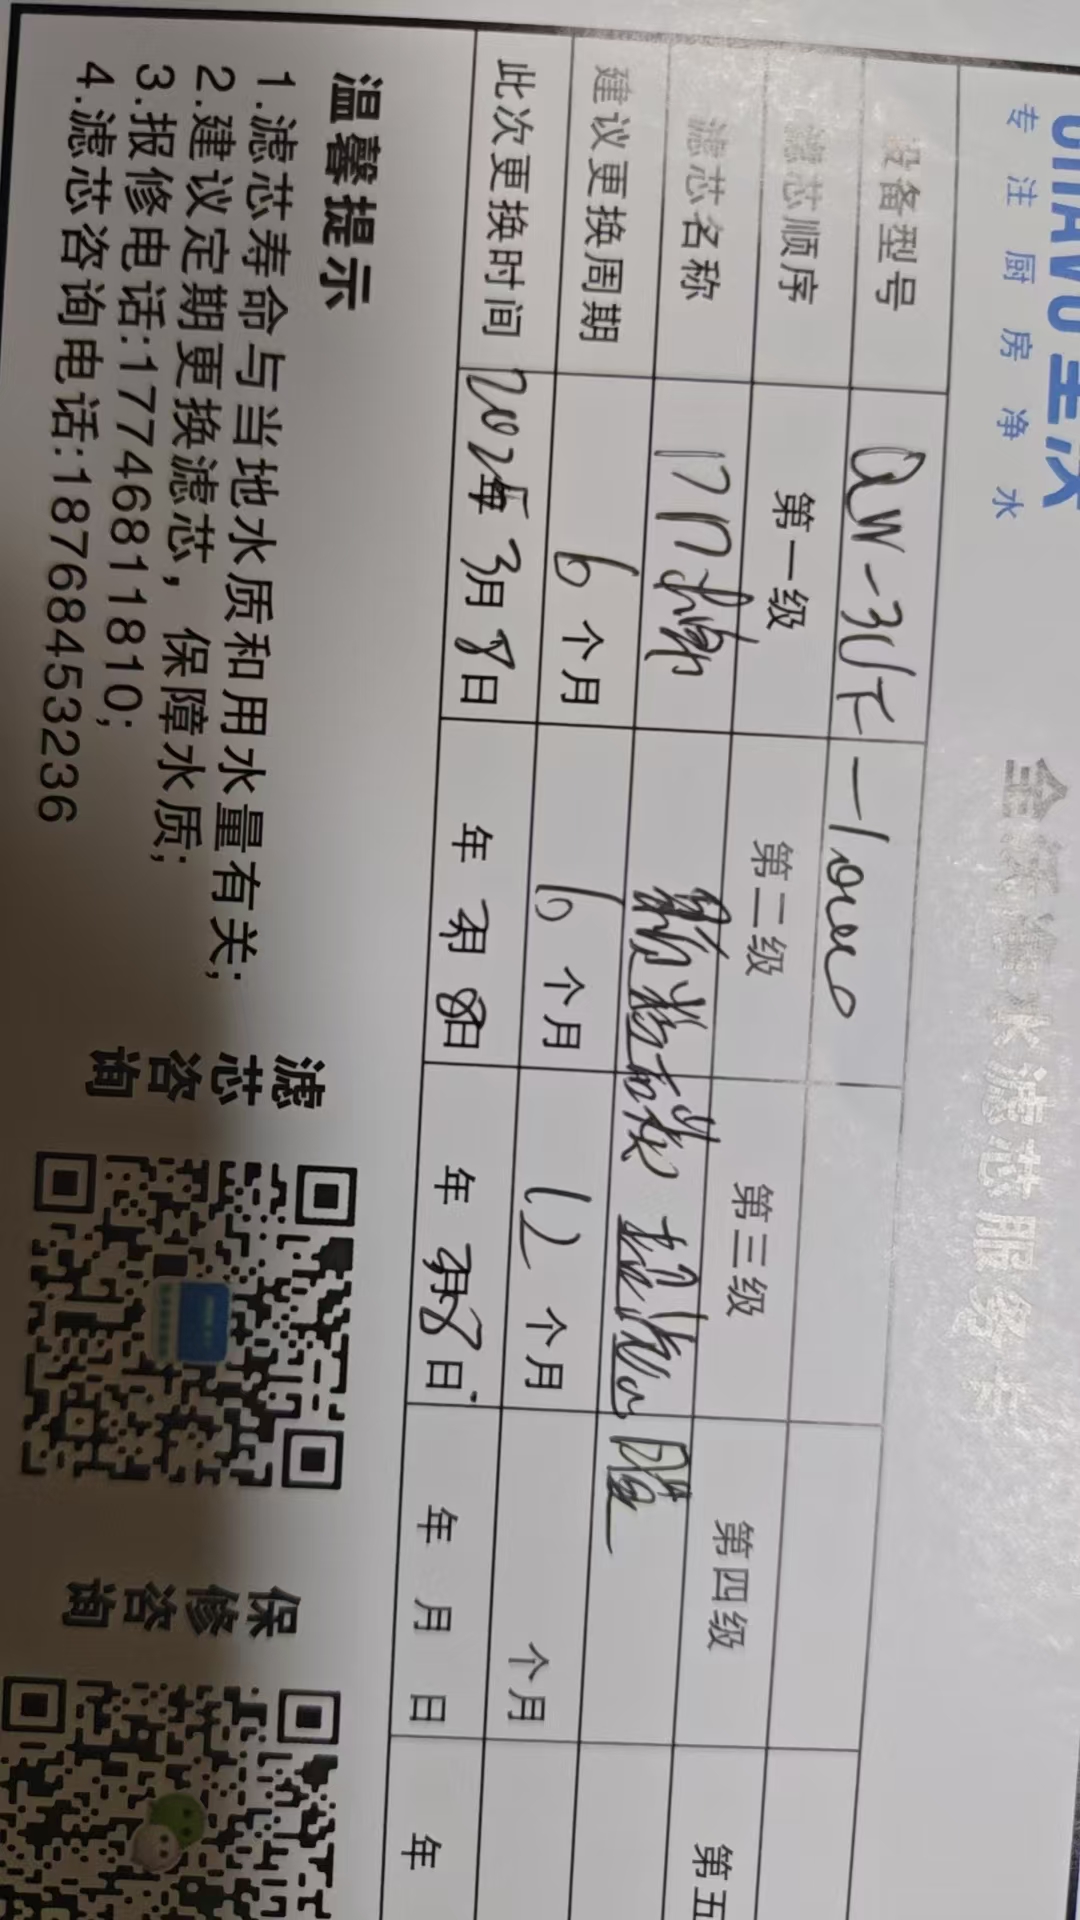 专注厨房净水
全沃净水滤芯服务卡
设备型号
滤芯顺序 第一级 第二级 第三级 第四级
滤芯名称 PP棉 颗粒碳 超滤膜
建议更换周期 6个月 6个月 12个月 个月
此次更换时间 3月8日 年3月8日 年3月8日 年 月 日 年
温馨提示
1.滤芯寿命与当地水质和用水量有关;
2.建议定期更换滤芯，保障水质;
3.报修电话:17746811810;
4.滤芯咨询电话:18768453236
滤芯咨询
保修咨询